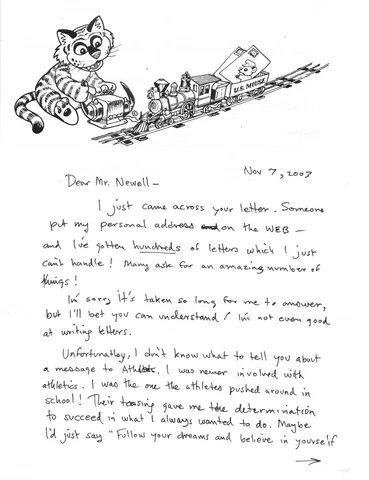 U.S. MOUSE
Nov 7, 2007
Dear Mr. Newell –
I just came across your letter. Someone
put my personal address on the WEB –
and I've gotten hundreds of letters which I just
can't handle! Many ask for an amazing number of
things!
I'm sorry it's taken so long for me to answer,
but I'll bet you can understand! I'm not even good
at writing letters.
Unfortunatley, I don't know what to tell you about
a message to Athletes. I was never involved with
athletics. I was the one the athletes pushed around in
school! Their teasing gave me the determination
to succeed in what I always wanted to do. Maybe
I'd just say "Follow your dreams and believe in yourself
→